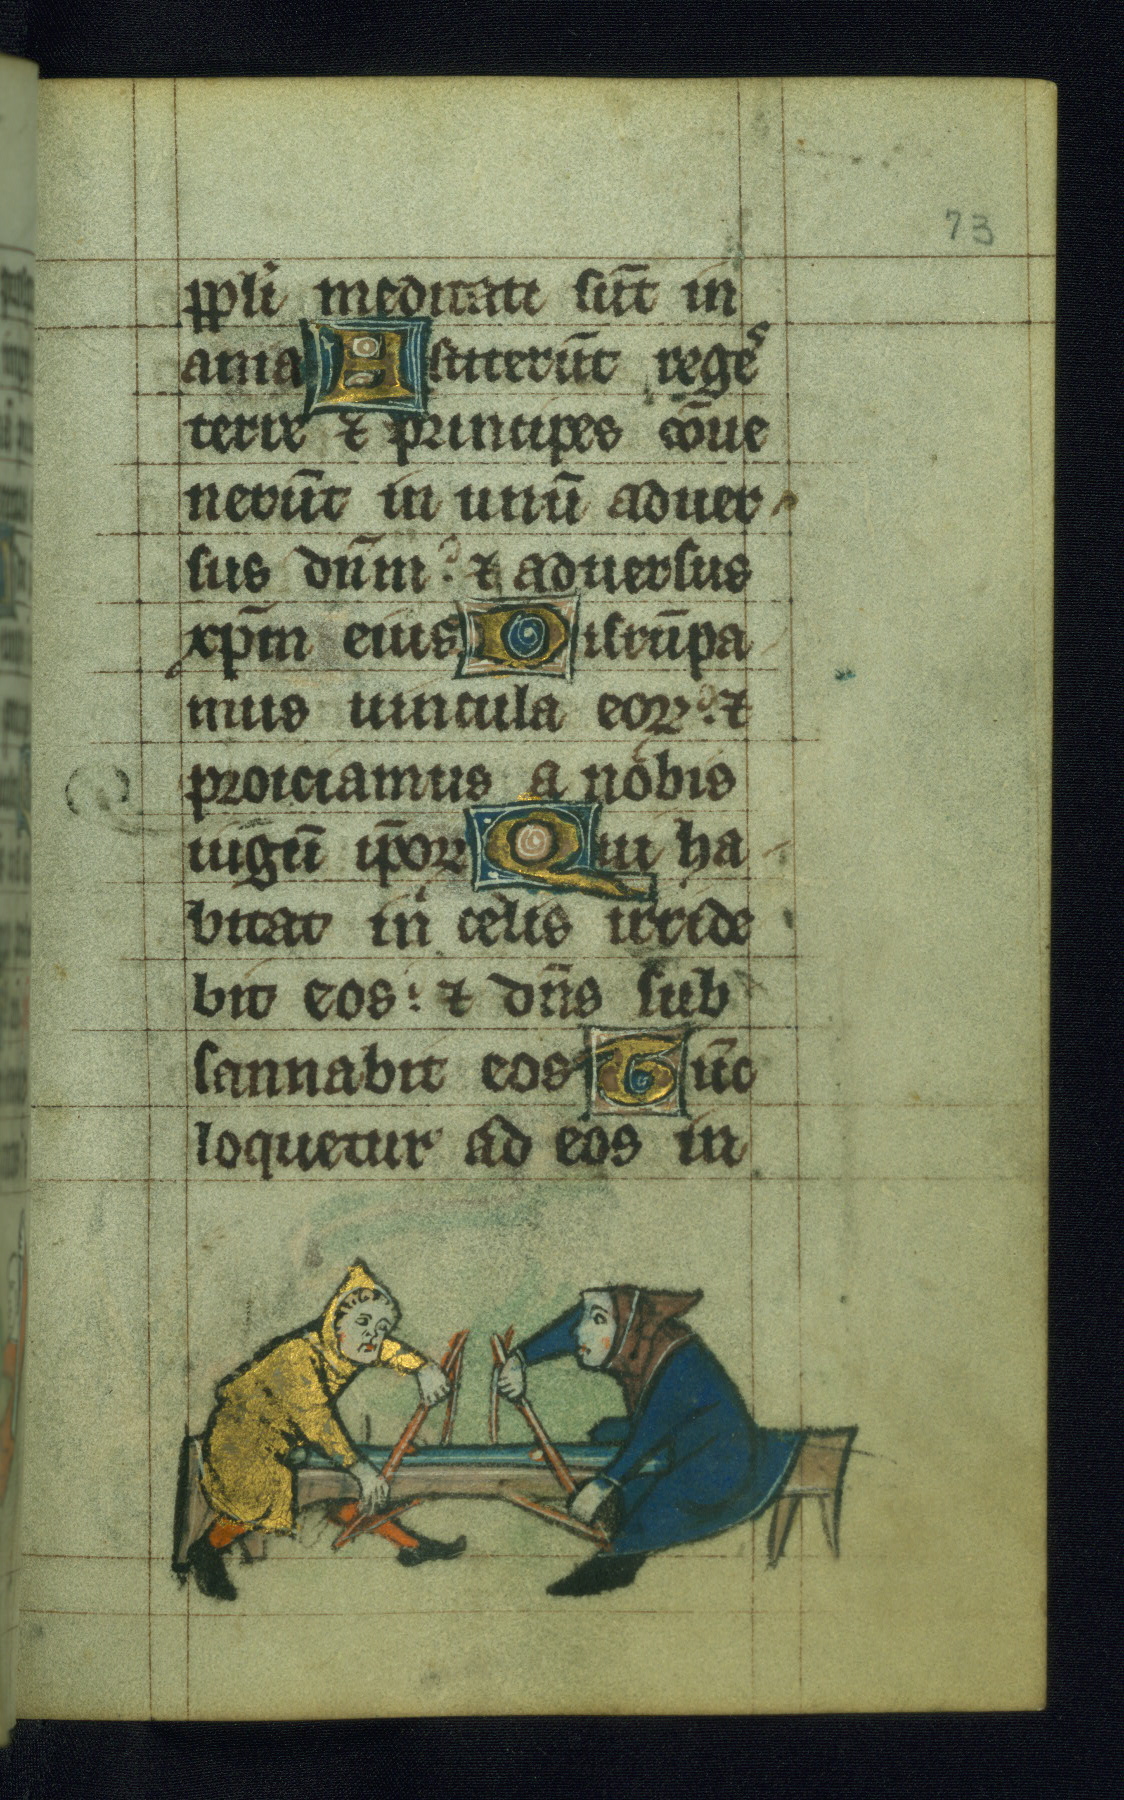 73
ppl̄i meditati sūt in
ania Astiterūt regeᷤ
terre ⁊ principes cōue
nerūt in unū aduer
sus dn̄m ⁊ aduersus
xp̄m eius Disrūpa
mus uincula eoꝝ ⁊
proiciamus a nobis
iugū ip̄oꝝ Qui ha
bitat in celis irride
bit eos ⁊ dn̄s sub
sannabit eos Tūc
loquetur ad eos in